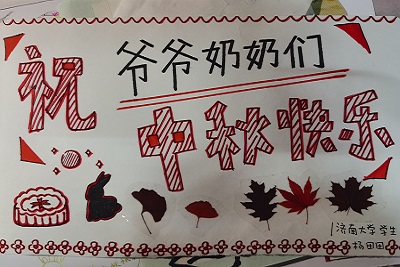 祝
爷爷奶奶们
中秋快乐
济南大学学生
杨田田